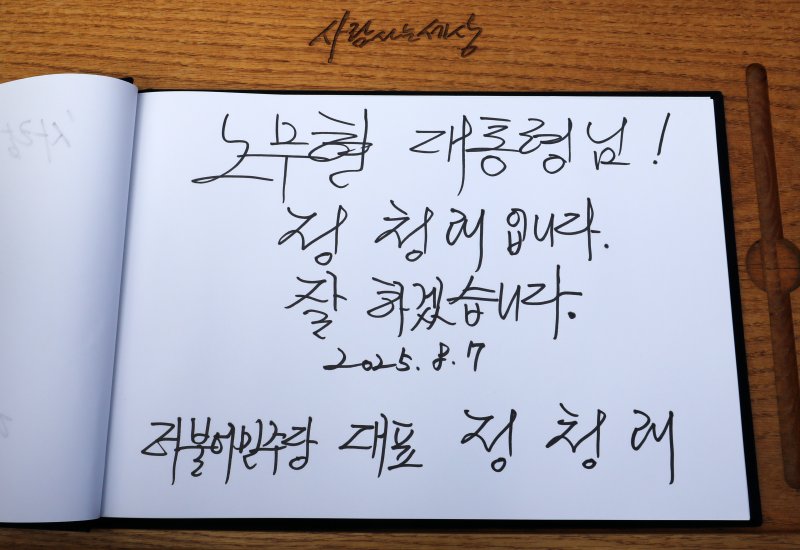 사람사는세상
노무현 대통령님!
정청래입니다.
잘 하겠습니다.
2025. 8. 7
더불어민주당 대표 정청래
사람